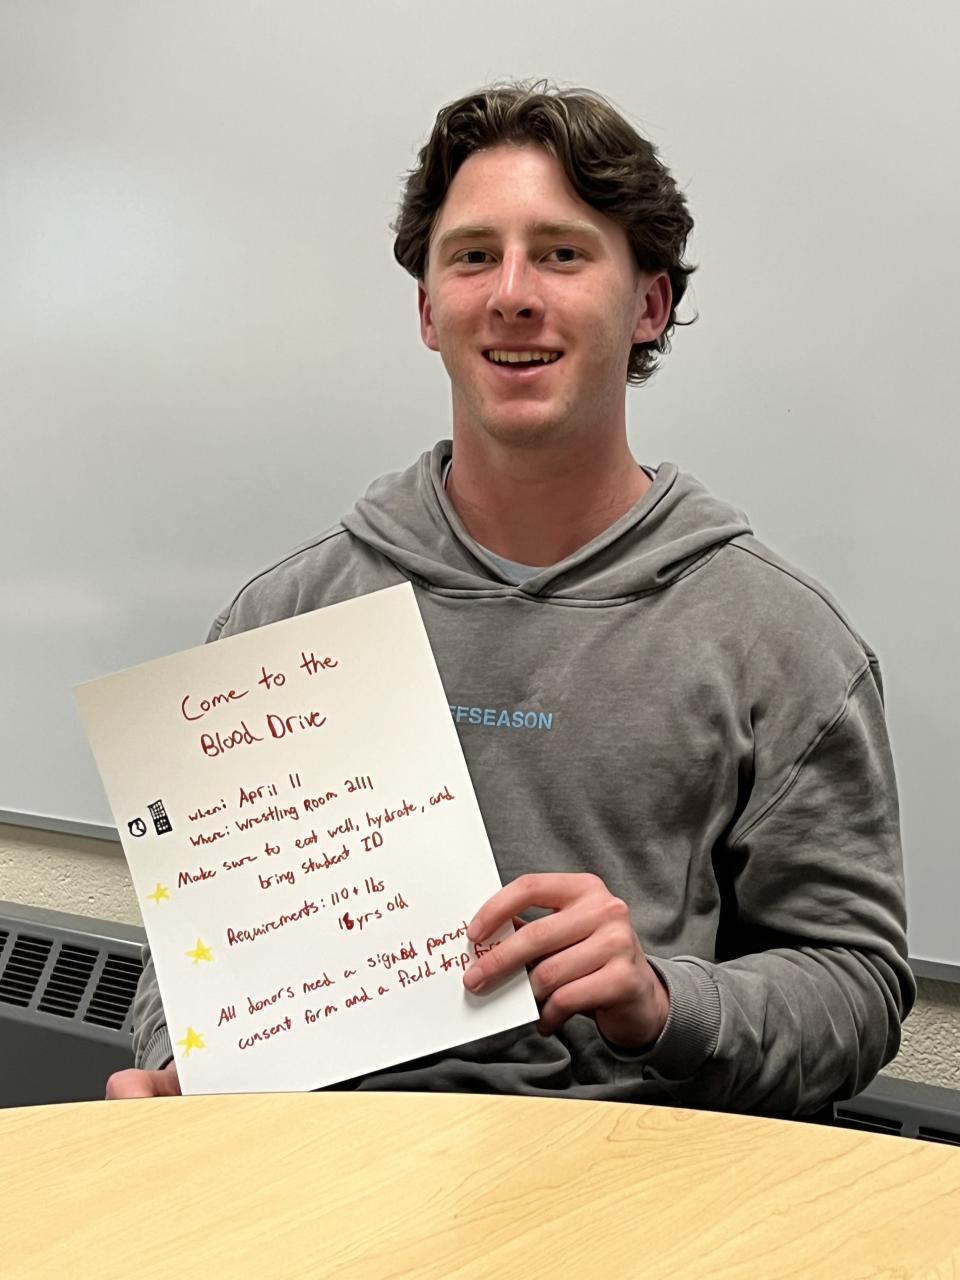 Come to the
Blood Drive
when: April 11
Where: Wrestling Room 2111
Make sure to eat well, hydrate, and
bring student ID
Requirements: 110+ lbs
18 yrs old
All donors need a signed parent
consent form and a field trip
FFSEASON